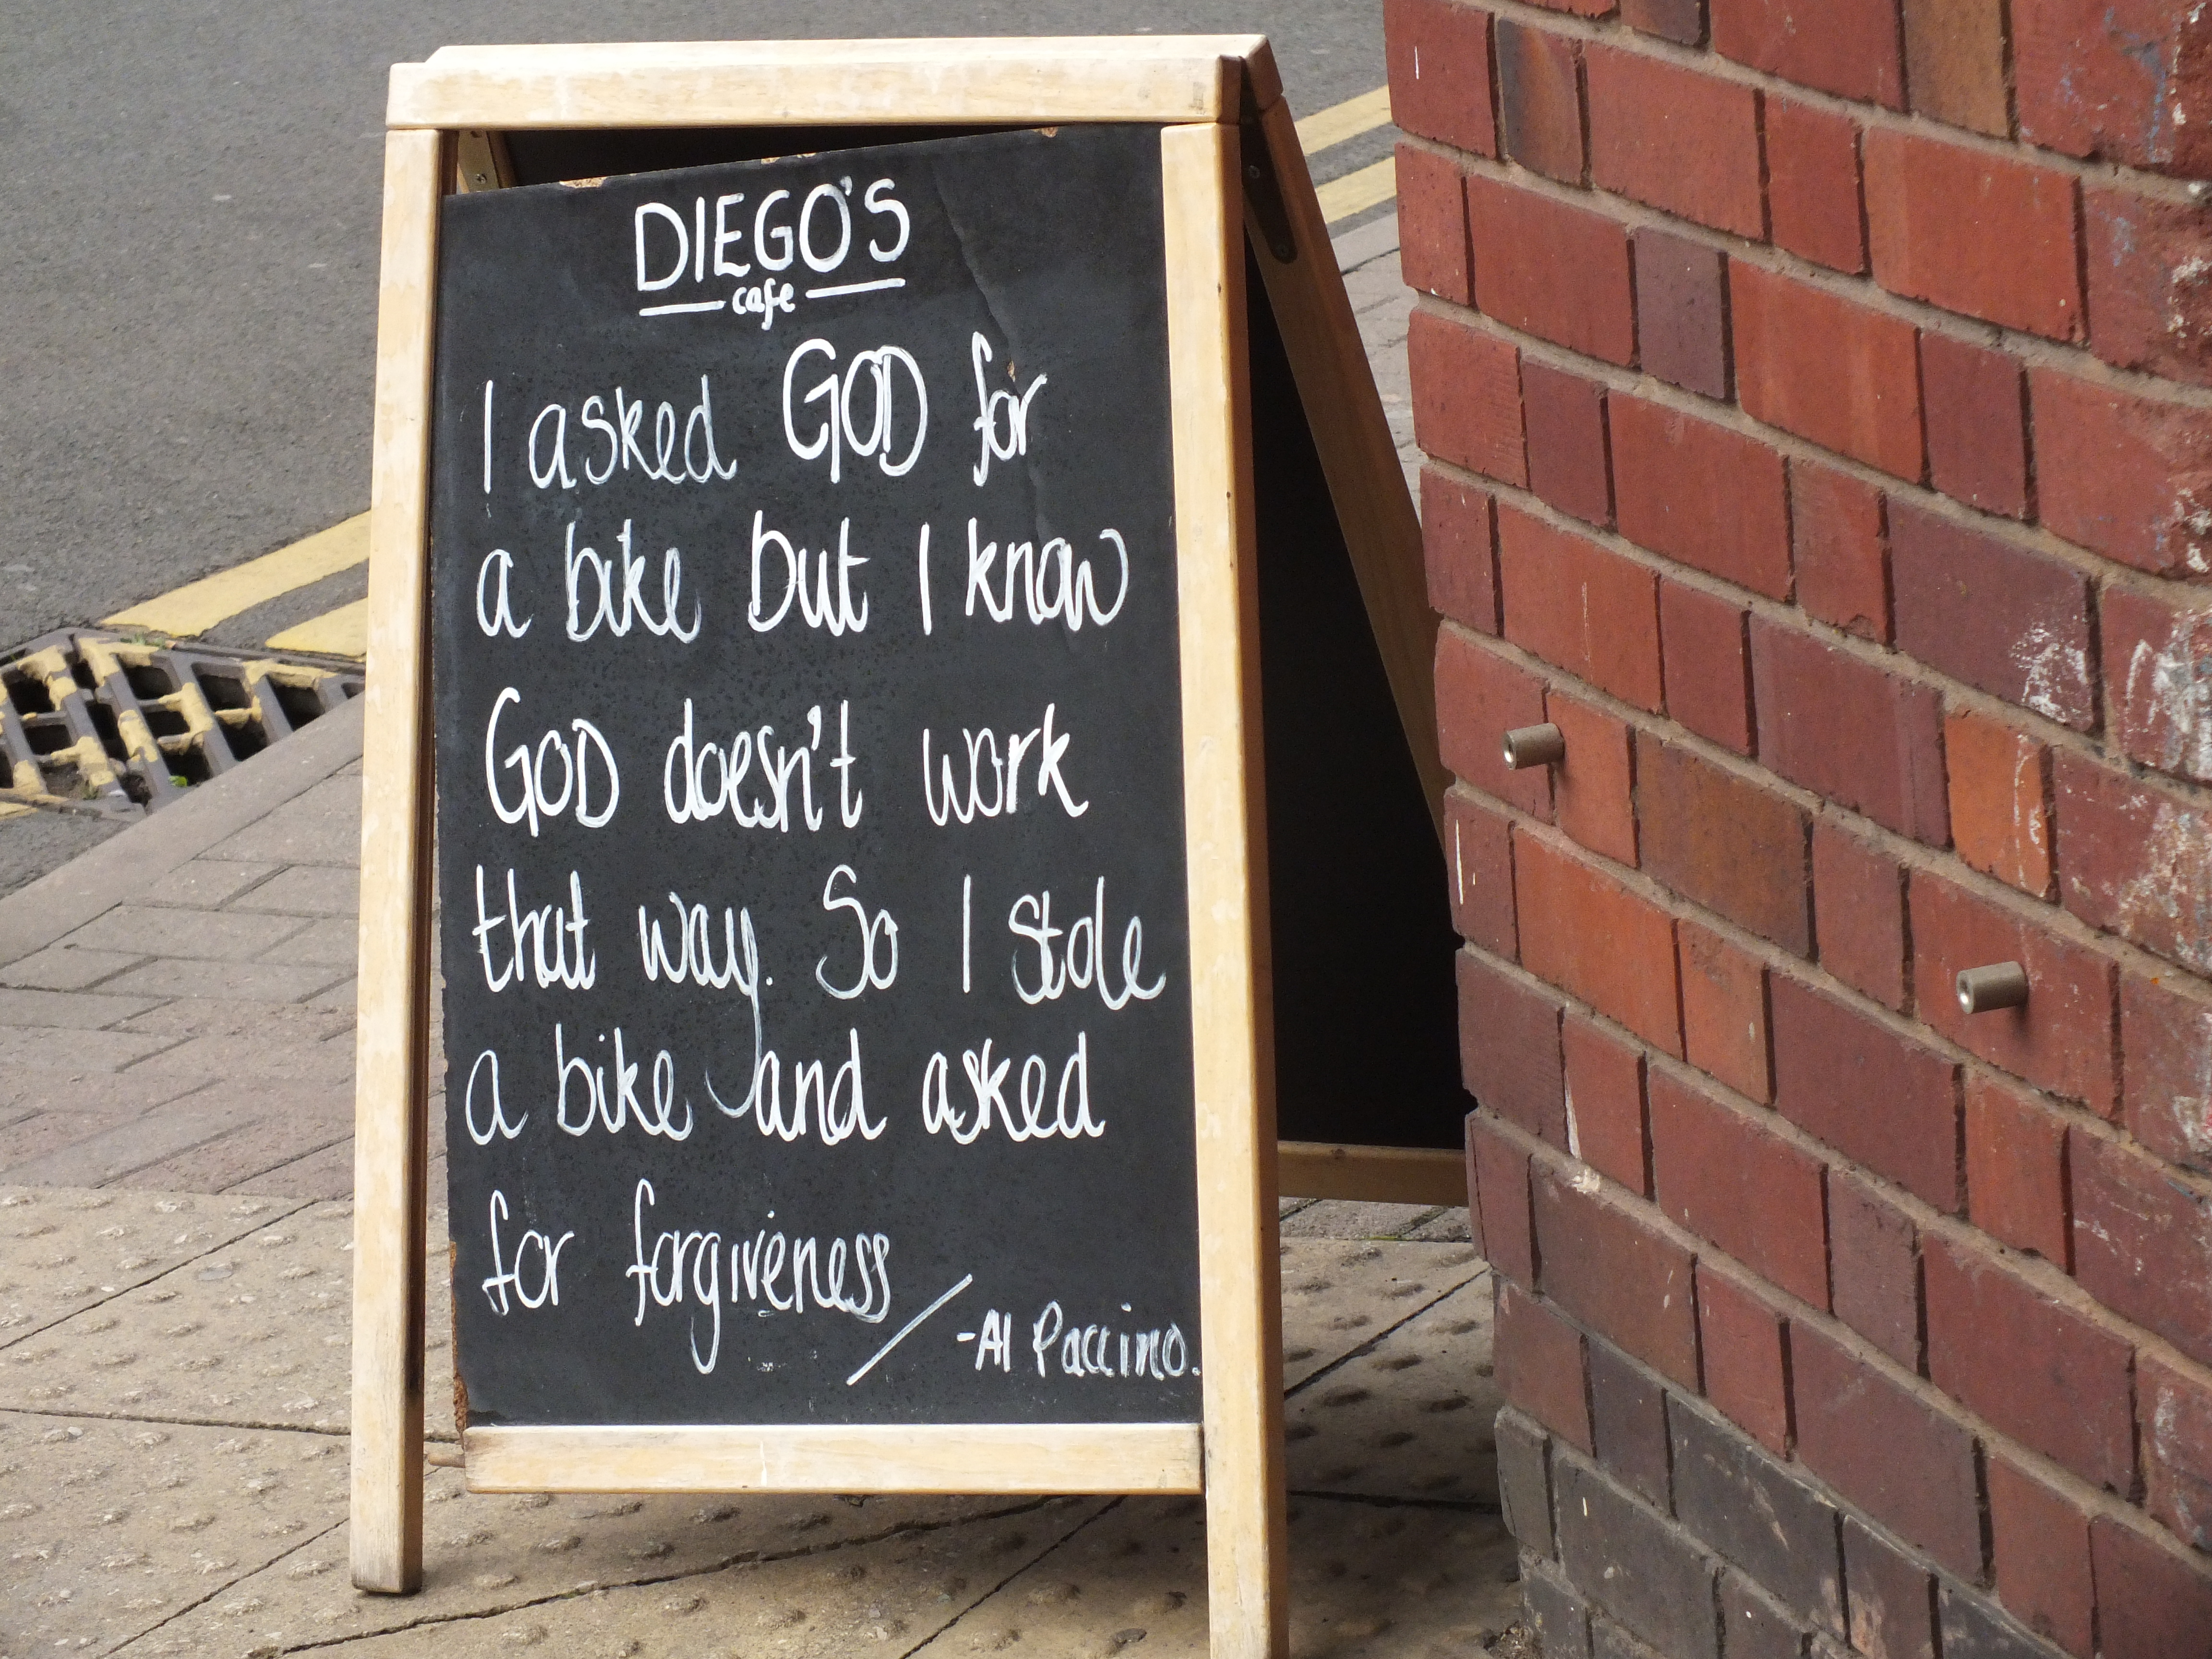 DIEGO'S
cafe
I asked GOD for
a bike but I know
GOD doesn't work
that way. So I stole
a bike and asked
for forgiveness
-Al Paccino.